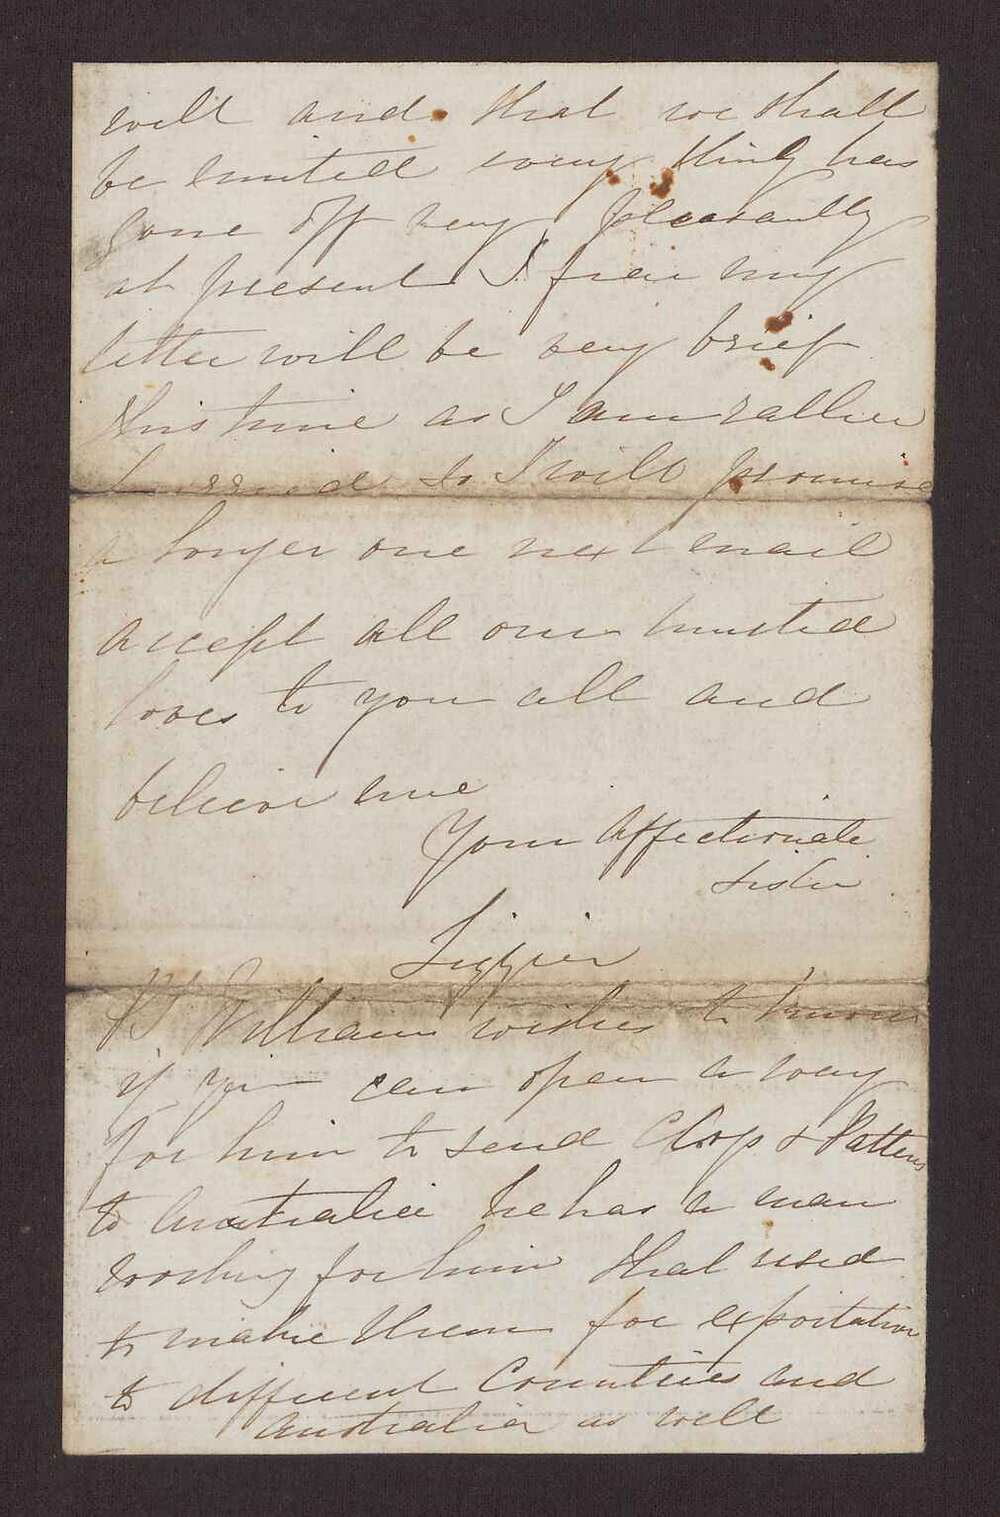 well and that we shall
be united every thing has
gone off very pleasantly
at present I fear my
letter will be very brief
this time as I am rather
hurried so I will promise
a longer one next mail
accept all our united
loves to you all and
believe me
Your Affectionate
Sister
Lizzie
PS William wishes to know
if you can open a way
for him to send Clogs & Pattens
to Australia he has a man
working for him that used
to make them for exportation
to different Countries and
Australia as well